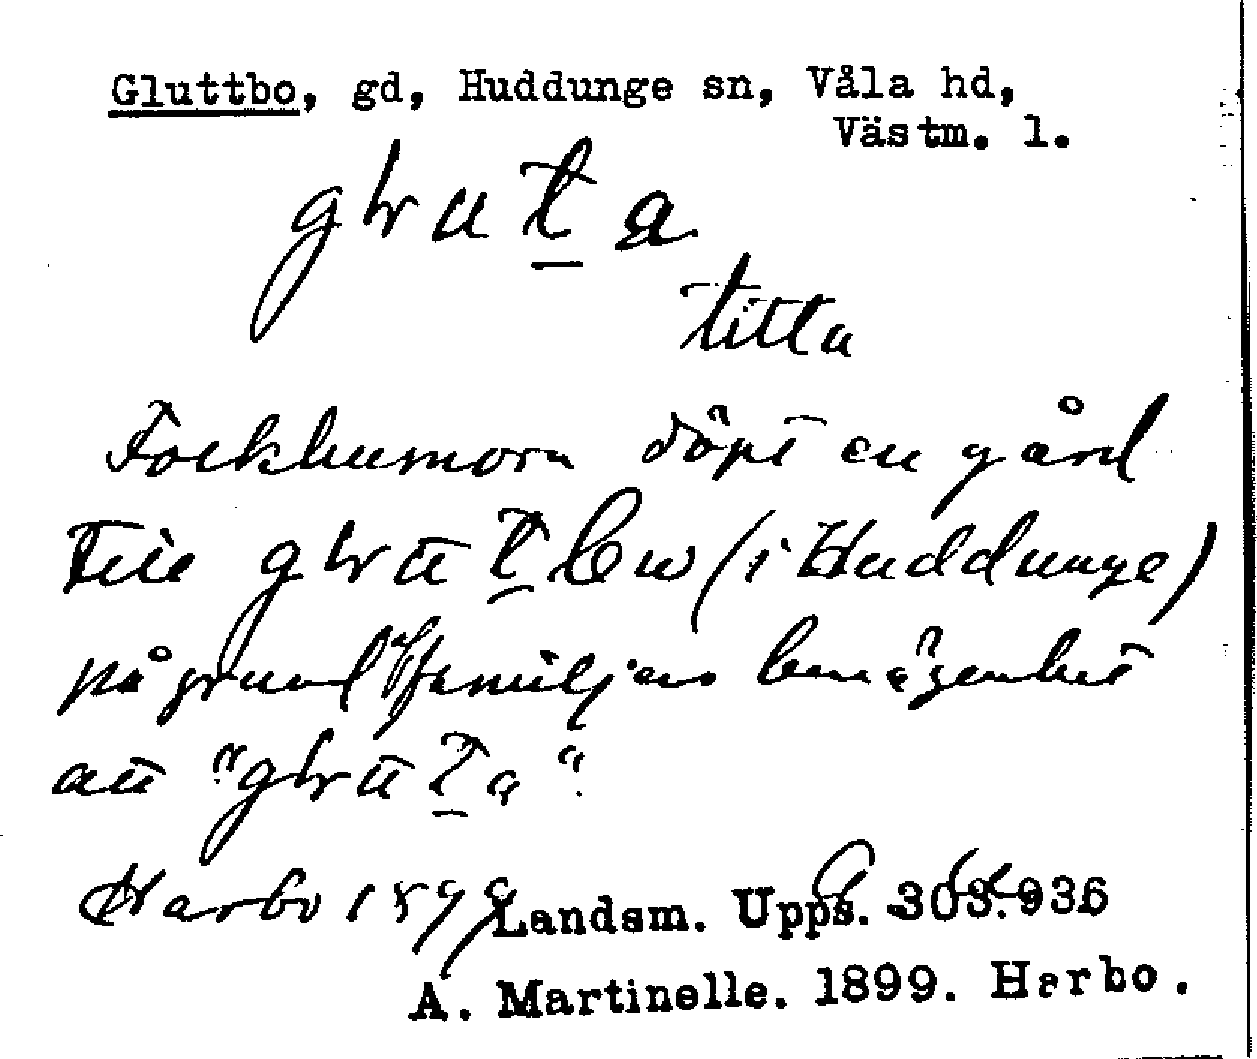 Gluttbo, gd, Huddunge sn, Våla hd,
Västm. l.
titta
Folkhumorn döpt en gård
till (i Huddunge)
på grund af familjens benägenhet
att
Harbo 1899 Landsm. Upps. 303:936
A. Martinelle. 1899. Harbo.